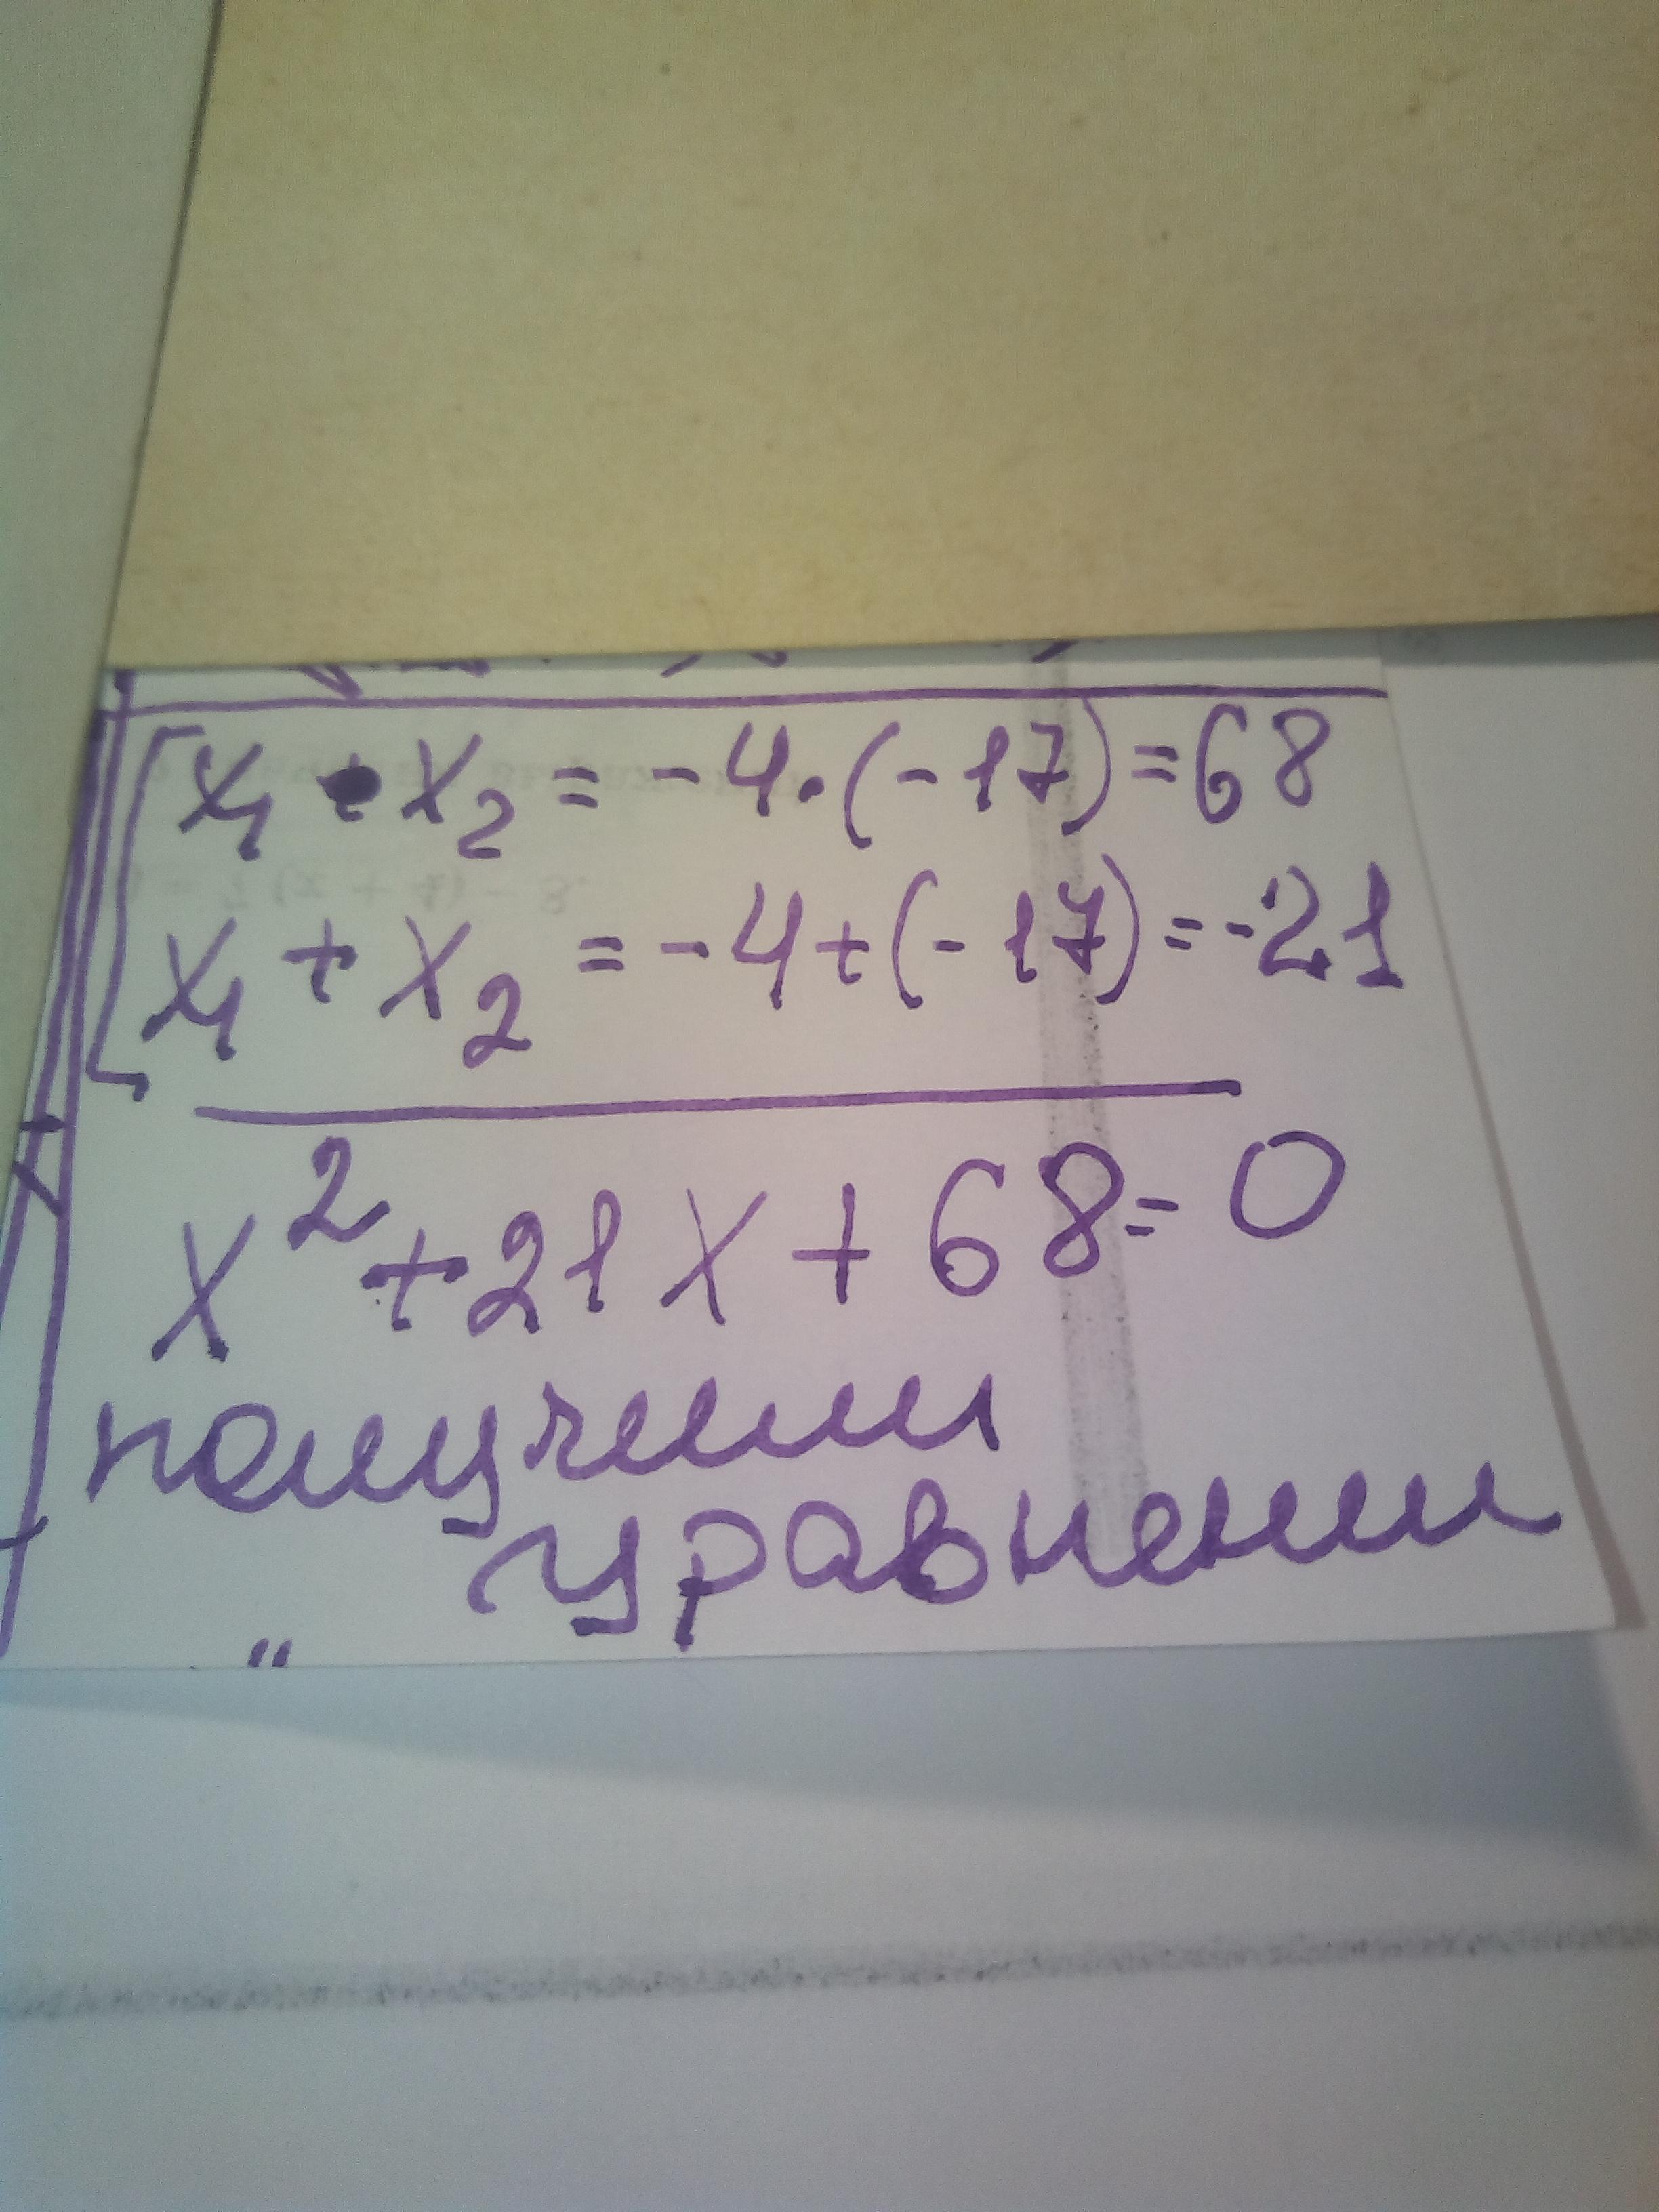 x₁ • x₂ = -4·(-17)=68
x₁ + x₂ = -4+(-17)=-21
x²+21x+68=0
получим
уравнении